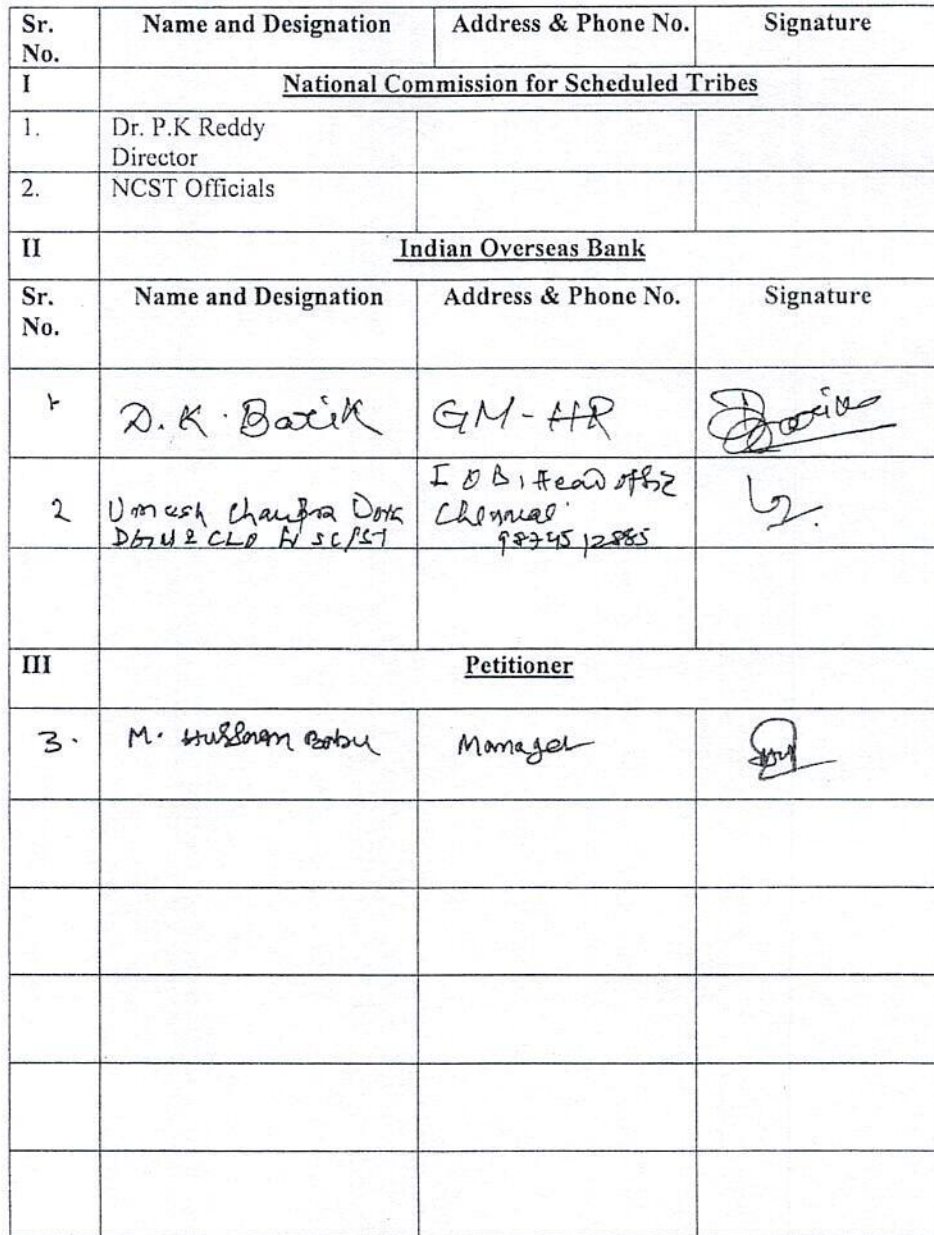 Sr. No. Name and Designation Address & Phone No. Signature
I National Commission for Scheduled Tribes
1. Dr. P.K Reddy
Director
2. NCST Officials
II Indian Overseas Bank
Sr. No. Name and Designation Address & Phone No. Signature
1 D.K. Barik GM-HR Barik
2 Umesh Chandra Dora IOB, Head office
DGM & CLO for SC/ST Chennai
III Petitioner
3. M. Hussain Babu Manager